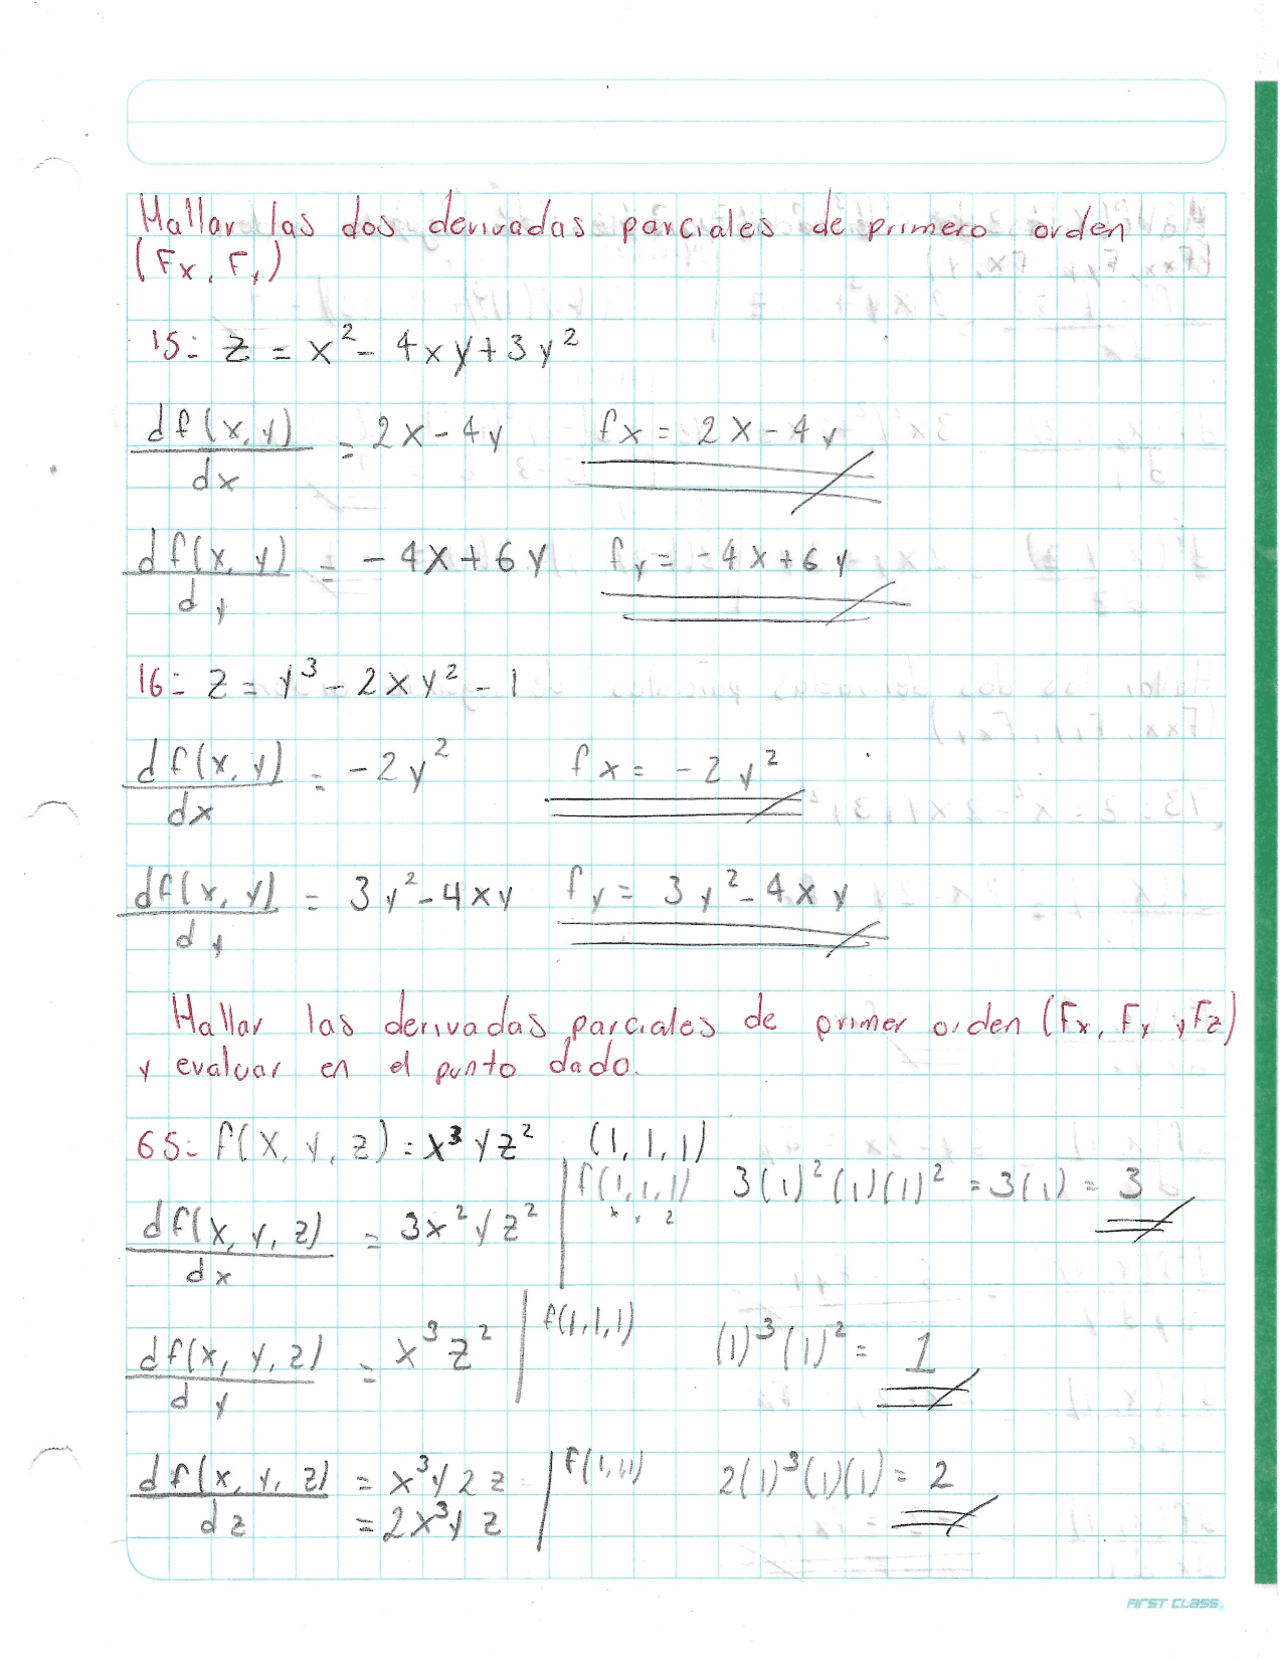 Hallar las dos derivadas parciales de primero orden
(Fx, Fy)
15= z = x² - 4xy + 3y²
df(x, y)/dx = 2x - 4y    fx = 2x - 4y
df(x, y)/dy = -4x + 6y    fy = -4x + 6y
16= z = y³ - 2xy² - 1
df(x, y)/dx = -2y²    fx = -2y²
df(x, y)/dy = 3y² - 4xy    fy = 3y² - 4xy
Hallar las derivadas parciales de primer orden (Fx, Fy y Fz)
y evaluar en el punto dado.
65= f(x, y, z) = x³yz²    (1, 1, 1)
df(x, y, z)/dx = 3x²yz² | f(1, 1, 1)    3(1)²(1)(1)² = 3(1) = 3
x y z
df(x, y, z)/dy = x³z² | f(1,1,1)    (1)³(1)² = 1
df(x, y, z)/dz = x³y2z | f(1,1,1)    2(1)³(1)(1) = 2
= 2x³yz
FIRST CLASS